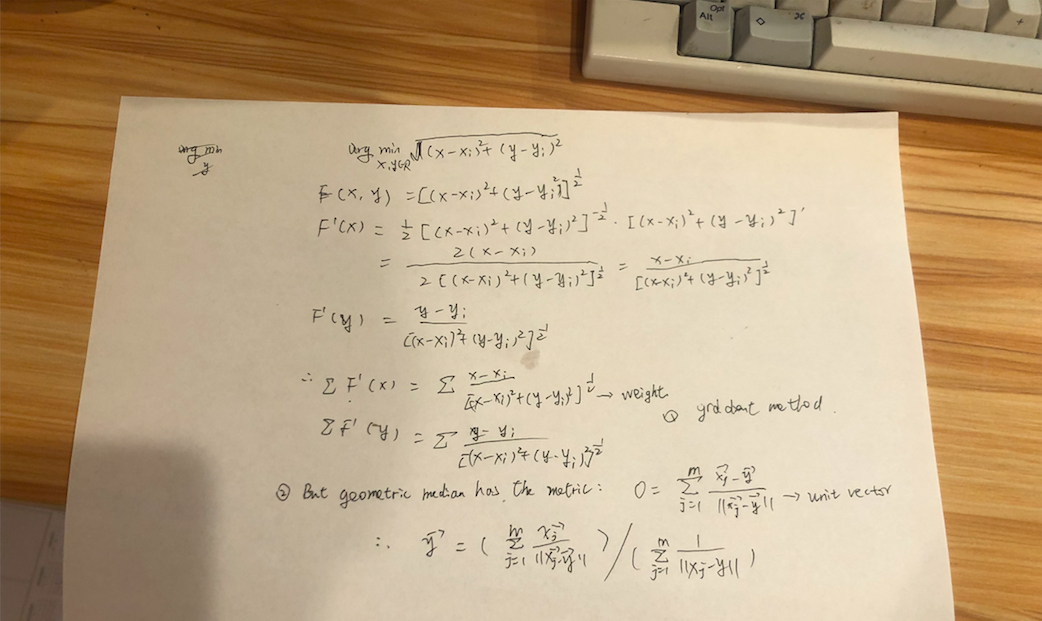 Opt
Alt
⌘
+
arg min
y
arg min √(x-xᵢ)²+(y-yᵢ)²
x,y∈R
F(x, y) = [(x-xᵢ)²+(y-yᵢ)²]^½
F'(x) = ½ [(x-xᵢ)²+(y-yᵢ)²]^-½ · [(x-xᵢ)²+(y-yᵢ)²]'
= 2(x-xᵢ) / 2[(x-xᵢ)²+(y-yᵢ)²]^½ = x-xᵢ / [(x-xᵢ)²+(y-yᵢ)²]^½
F'(y) = y-yᵢ / [(x-xᵢ)²+(y-yᵢ)²]^½
∴ Σ F'(x) = Σ x-xᵢ / [(x-xᵢ)²+(y-yᵢ)²]^½ → weight
① gradient method.
Σ F'(y) = Σ y-yᵢ / [(x-xᵢ)²+(y-yᵢ)²]^½
② But geometric median has the metric: 0 = Σ_{j=1}^{m} (x⃗ⱼ-y⃗) / ||x⃗ⱼ-y⃗|| → unit vector
∴ y⃗ = ( Σ_{j=1}^{m} x⃗ⱼ / ||x⃗ⱼ-y⃗|| ) / ( Σ_{j=1}^{m} 1 / ||xⱼ-y|| )